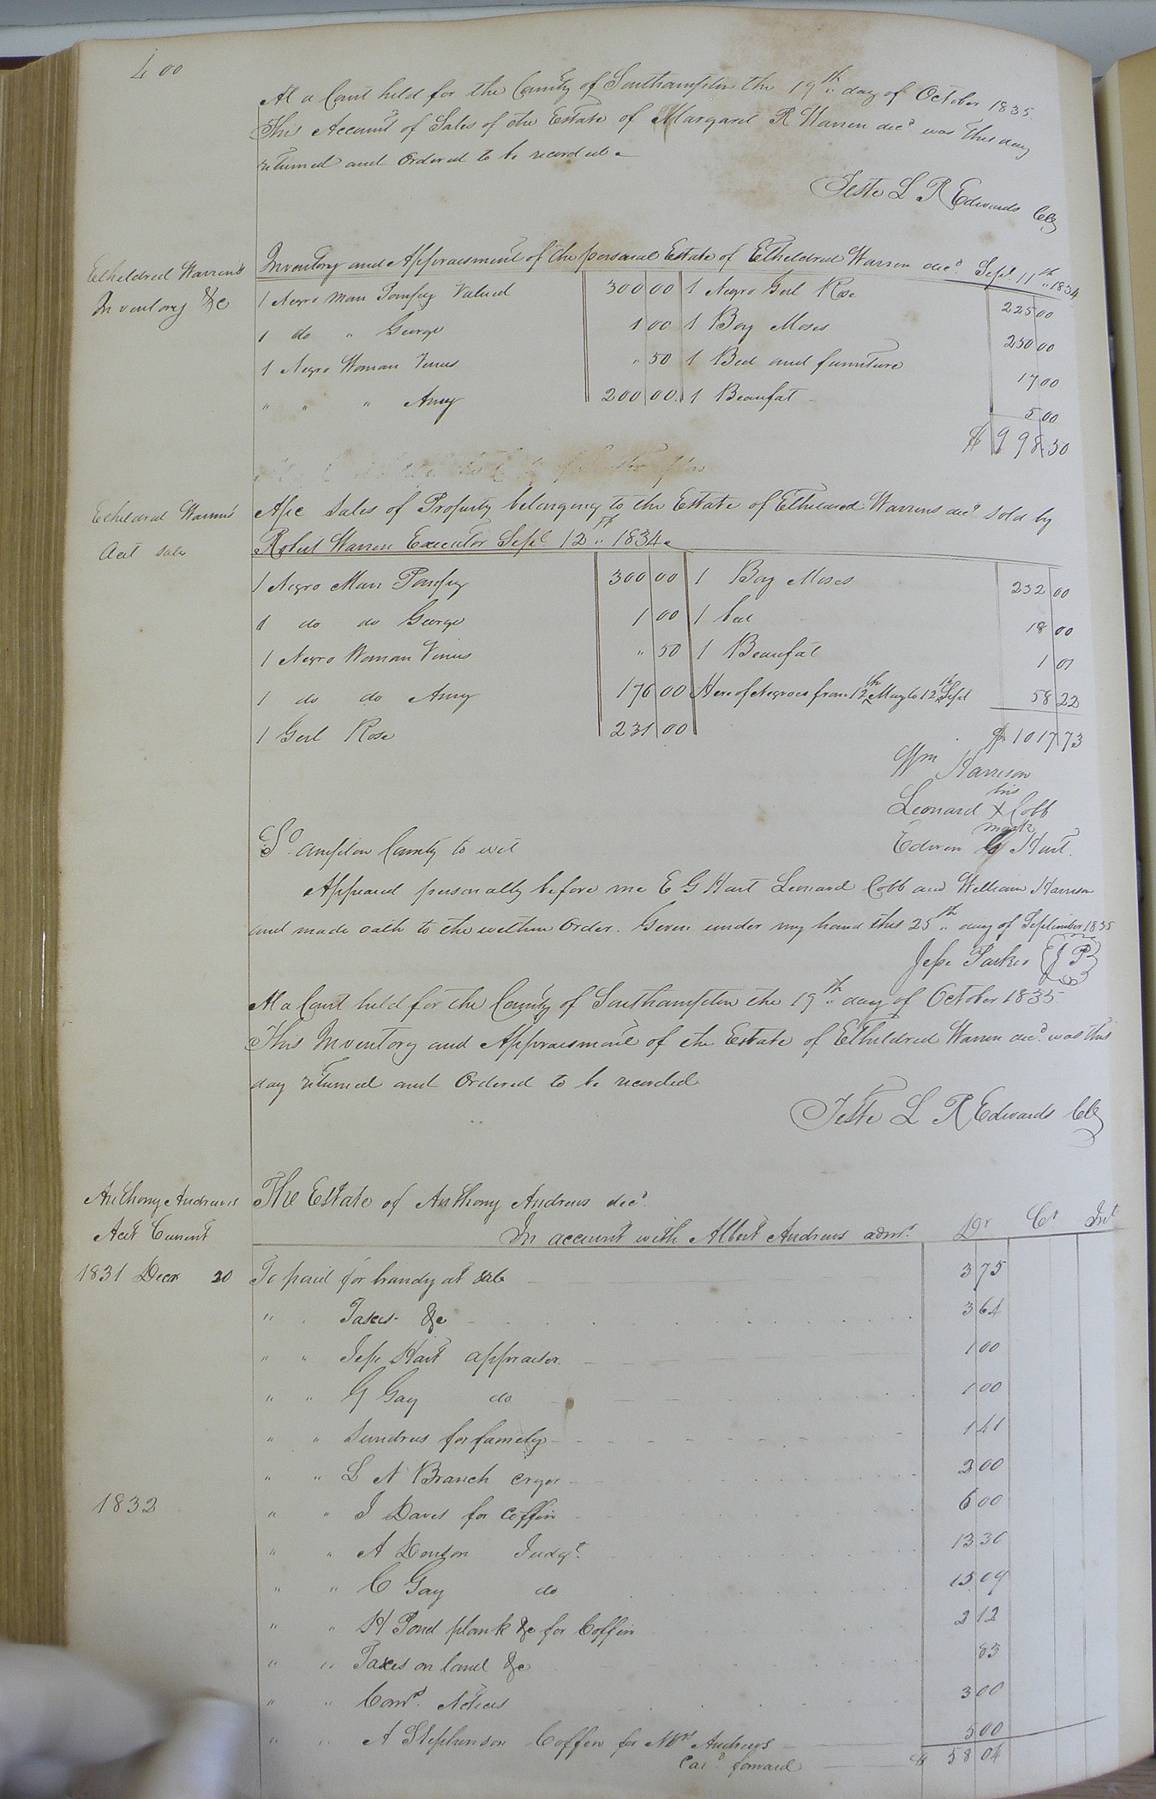 400
At a Court held for the County of Southampton the 19th day of October 1835
This Account of Sales of the Estate of Margaret R Warren decd was this day
returned and Ordered to be recorded
Teste L R Edwards Clk
Etheldred Warren's
Inventory &c
Inventory and Appraisment of the personal Estate of Etheldred Warren decd Sept 11th 1834
1 Negro Man Pompy Valued 300 00 1 Negro Girl Rose 225 00
1 do " George 1 00 1 Boy Moses 250 00
1 Negro Woman Venus " 50 1 Bed and furniture 17 00
" " " Amy 200 00 1 Beaufat 5 00
$ 998 50
Etheldred Warren's
Acct sale
Apc Sales of Property belonging to the Estate of Etheldred Warrens decd sold by
Robert Warren Executor Sept 12th 1834
1 Negro Man Pompy 300 00 1 Boy Moses 232 00
1 do do George 1 00 1 bed 18 00
1 Negro Woman Venus " 50 1 Beaufat 1 01
1 do do Amy 176 00 Hire of Negroes from 12th May to 12th Sept 58 22
1 Girl Rose 231 00 $ 1017 73
Wm Harrison
his
Leonard X Cobb
mark
Edwin G Hart
So ampton County to wit
Appeared personally before me E G Hart Leonard Cobb and William Harrison
and made oath to the within Order. Given under my hand this 25th day of September 1835
Jesse Parker (J P)
At a Court held for the County of Southampton the 19th day of October 1835
This Inventory and Appraisment of the Estate of Etheldred Warren decd was this
day returned and Ordered to be recorded
Teste L R Edwards Clk
Anthony Andrews
Acct Current
The Estate of Anthony Andrews decd
In account with Albert Andrews admr. Dr Cr Int
1831 Decr 20 To paid for brandy at sale 3 75
" " Taxes &c 3 64
" " Jesse Hart appraiser 1 00
" " G Gay do 1 00
" " Sundries for family 1 41
" " L N Branch cryer 2 00
1832 " " J Daves for Coffin 6 00
" " A Doulson Judgt. 13 30
" " C Gay do 15 09
" " H Pond plank &c for Coffin 2 12
" " Taxes on land &c 83
" " Comrs. Notices 3 00
" " A Stephenson Coffin for Mrs Andrews 5 00
Card forward $ 58 04